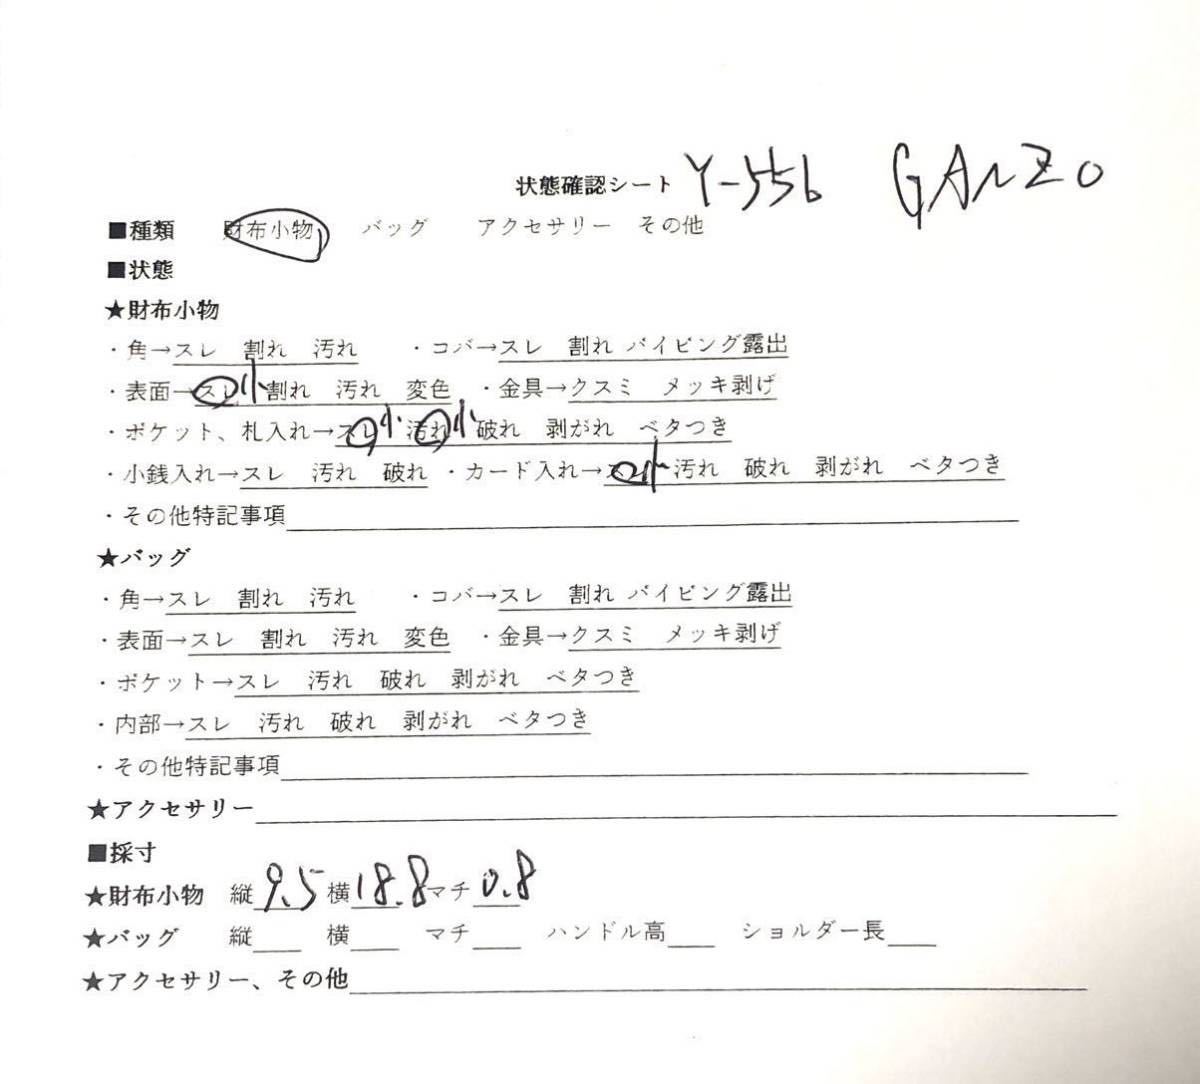 状態確認シート Y-556 GANZO
■種類 財布小物 バッグ アクセサリー その他
■状態
★財布小物
・角→スレ 割れ 汚れ ・コバ→スレ 割れ パイピング露出
・表面→スレ小 割れ 汚れ 変色 ・金具→クスミ メッキ剥げ
・ポケット、札入れ→スレ小 汚れ小 破れ 剥がれ ベタつき
・小銭入れ→スレ 汚れ 破れ ・カード入れ→スレ小 汚れ 破れ 剥がれ ベタつき
・その他特記事項
★バッグ
・角→スレ 割れ 汚れ ・コバ→スレ 割れ パイピング露出
・表面→スレ 割れ 汚れ 変色 ・金具→クスミ メッキ剥げ
・ポケット→スレ 汚れ 破れ 剥がれ ベタつき
・内部→スレ 汚れ 破れ 剥がれ ベタつき
・その他特記事項
★アクセサリー
■採寸
★財布小物 縦9.5 横18.8 マチ0.8
★バッグ 縦 横 マチ ハンドル高 ショルダー長
★アクセサリー、その他